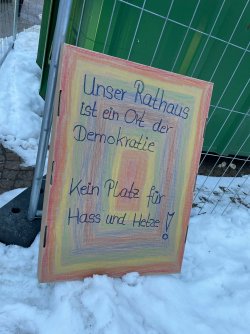 Unser Rathaus
ist ein Ort der
Demokratie
Kein Platz für
Hass und Hetze !